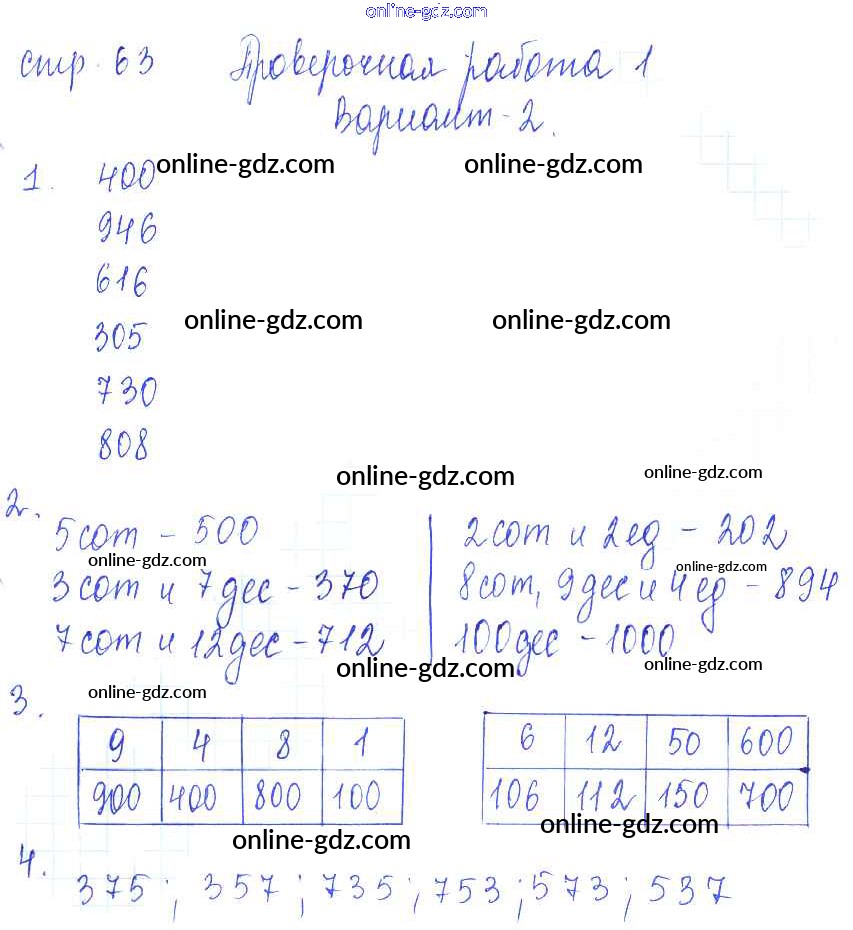 online-gdz.com
стр. 63 Проверочная работа 1
Вариант-2.
online-gdz.com online-gdz.com
1. 400
946
616
305
online-gdz.com online-gdz.com
730
808
online-gdz.com online-gdz.com
2. 5 сот - 500
2 сот и 2 ед - 202
online-gdz.com online-gdz.com
3 сот и 7 дес - 370
8 сот, 9 дес и 4 ед - 894
7 сот и 12 дес - 712
100 дес - 1000
online-gdz.com online-gdz.com
online-gdz.com
3.
9 4 8 1
900 400 800 100
6 12 50 600
106 112 150 700
online-gdz.com online-gdz.com
4. 375; 357; 735; 753; 573; 537